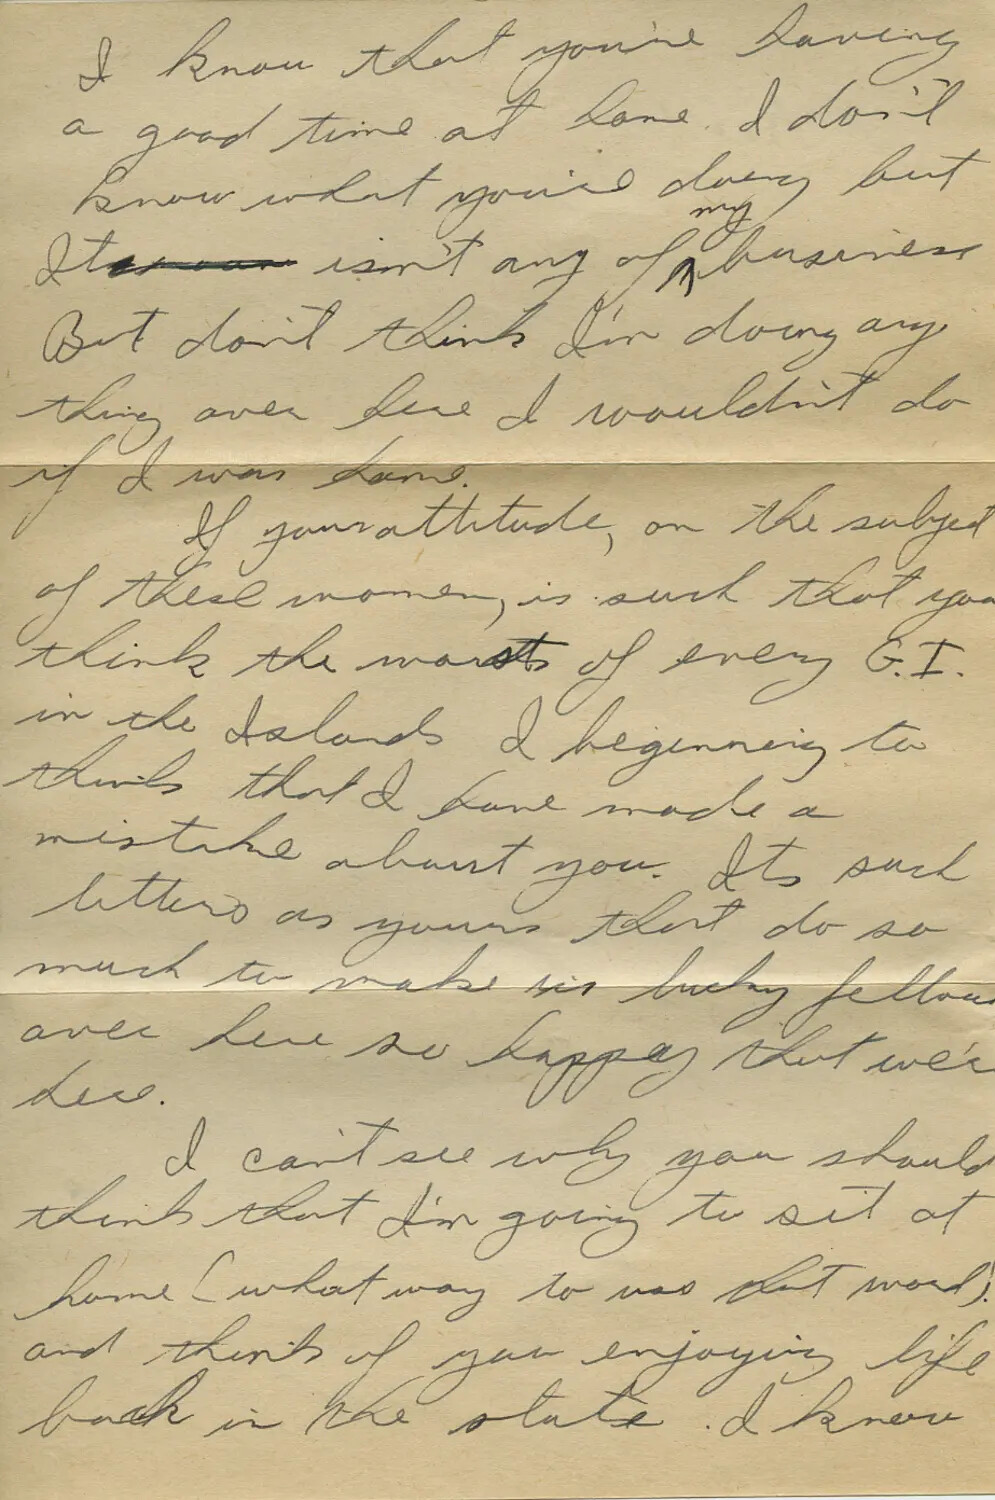 I know that you're having
a good time at home. I don't
know what you're doing but
It isn't any of my business
But don't think I'm doing any
thing over here I wouldn't do
if I was home.
If your attitude, on the subject
of these women, is such that you
think the worst of every G.I.
in the Islands I beginning to
think that I have made a
mistake about you. Its such
letters as yours that do so
much to make us lucky fellows
over here so happy that we're
here.
I can't see why you should
think that I'm going to sit at
home (what way to use that word).
and think of you enjoying life
back in the state. I know